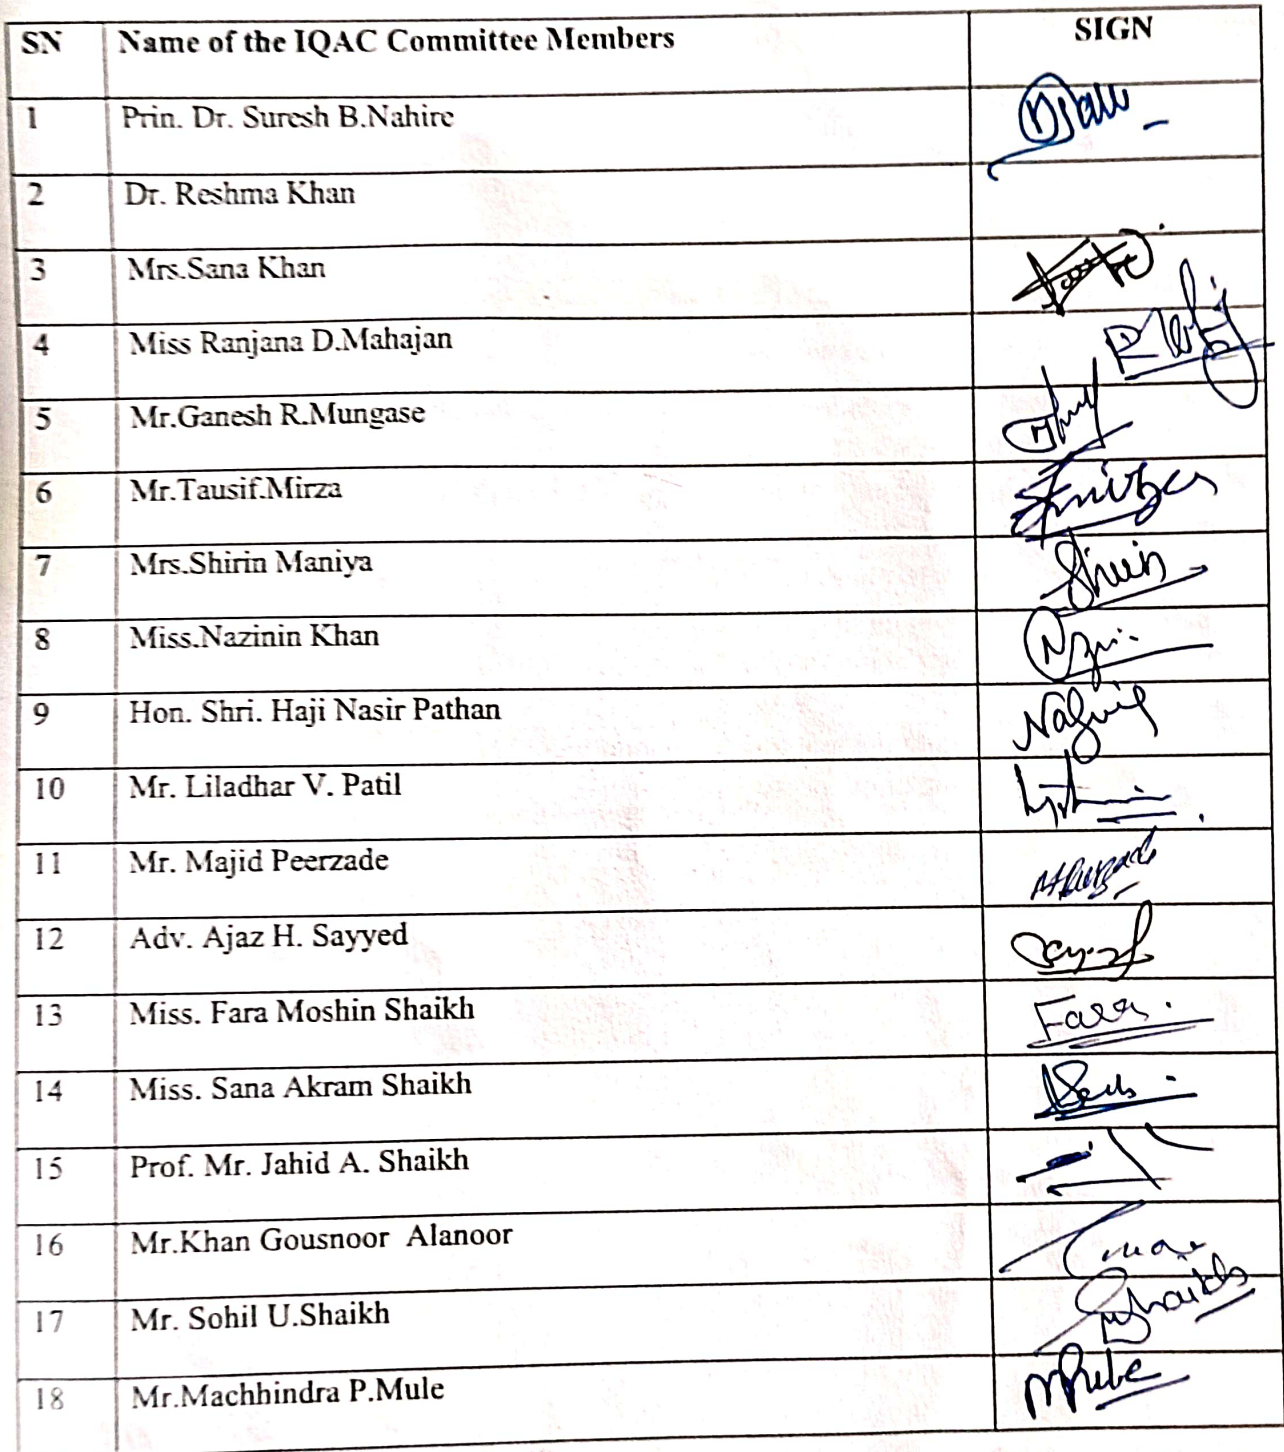 SN Name of the IQAC Committee Members SIGN
1 Prin. Dr. Suresh B.Nahire
2 Dr. Reshma Khan
3 Mrs.Sana Khan
4 Miss Ranjana D.Mahajan
5 Mr.Ganesh R.Mungase
6 Mr.Tausif.Mirza
7 Mrs.Shirin Maniya Shirin
8 Miss.Nazinin Khan
9 Hon. Shri. Haji Nasir Pathan
10 Mr. Liladhar V. Patil
11 Mr. Majid Peerzade
12 Adv. Ajaz H. Sayyed
13 Miss. Fara Moshin Shaikh Fara.
14 Miss. Sana Akram Shaikh
15 Prof. Mr. Jahid A. Shaikh
16 Mr.Khan Gousnoor Alanoor
17 Mr. Sohil U.Shaikh
18 Mr.Machhindra P.Mule